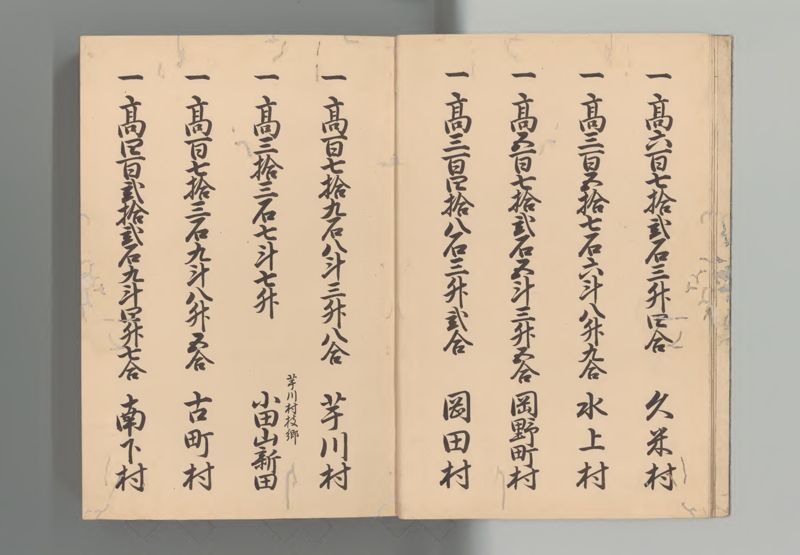 一高六百七拾弐石三升四合 久米村
一高三百五拾七石六斗八升九合 水上村
一高五百七拾弐石五斗三升五合 岡野町村
一高三百四拾八石三升弐合 岡田村
一高百七拾九石八斗三升八合 芋川村
一高三拾三石七斗七升 芋川村枝郷 小田山新田
一高百七拾三石九斗八升五合 古町村
一高四百弐拾弐石九斗四升七合 南下村